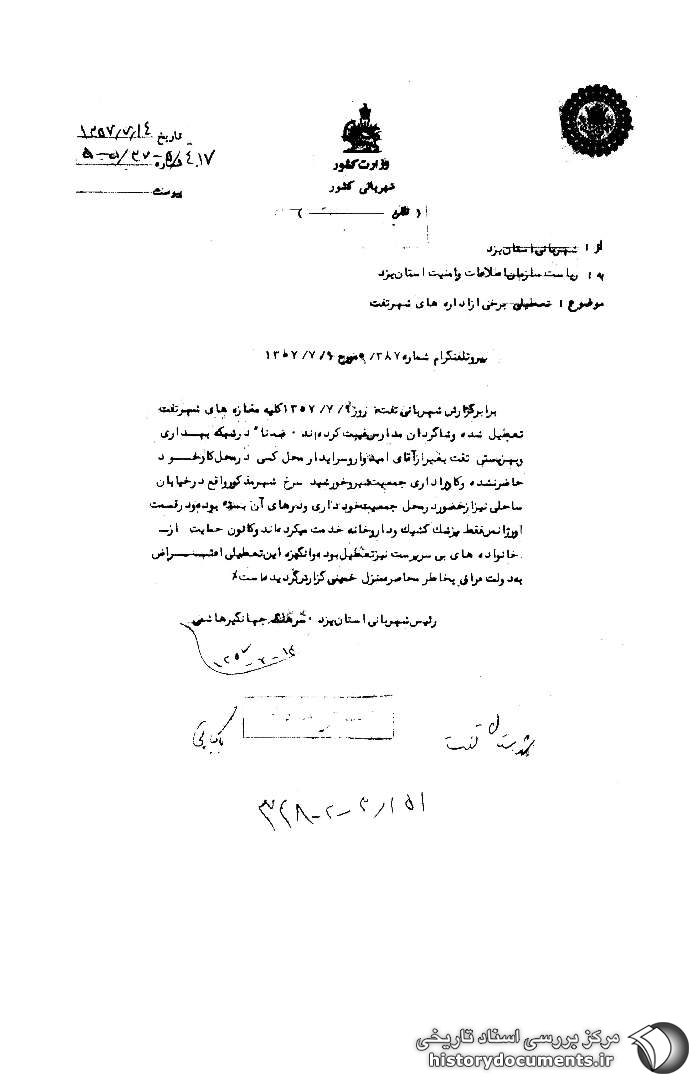 تاریخ ۱۳۵۷/۷/۱۴
شماره
پیوست
وزارت کشور
شهربانی کشور
از : شهربانی استان یزد
به : ریاست سازمان اطلاعات و امنیت استان یزد
موضوع : تعطیلی برخی از اداره های شهر تفت
پیرو تلفنگرام شماره ۳۸۷/ مورخ ۱۳۵۷/۷/۹
برابر گزارش شهربانی تفت روز ۱۳۵۷/۷/۹ کلیه مغازه های شهر تفت
تعطیل شده و شاگردان مدارس غیبت کرده اند ۰ ضمنا" در شبکه بهداری
و بهزیستی تفت بغیر از آقای امیدوار و سرایدار محل کسی در محل کار خود
حاضر نشده و کادر اداری جمعیت شیر و خورشید سرخ شهر مذکور واقع در خیابان
ساحلی نیز از حضور در محل جمعیت خودداری و درهای آن بسته بوده و در قسمت
اورژانس فقط پزشک کشیک و داروخانه خدمت میکرده اند و کانون حمایت از
خانواده های بی سرپرست نیز تعطیل بوده و انگیزه این تعطیلی اعتراض
به دولت عراق بخاطر محاصره منزل خمینی گزارش گردیده است٪
رئیس شهربانی استان یزد ۰ سرهنگ جهانگیر هاشمی
تفت
بایگانی
۳۲۸-۲-۳/۱۵۱
مرکز بررسی اسناد تاریخی
historydocuments.ir